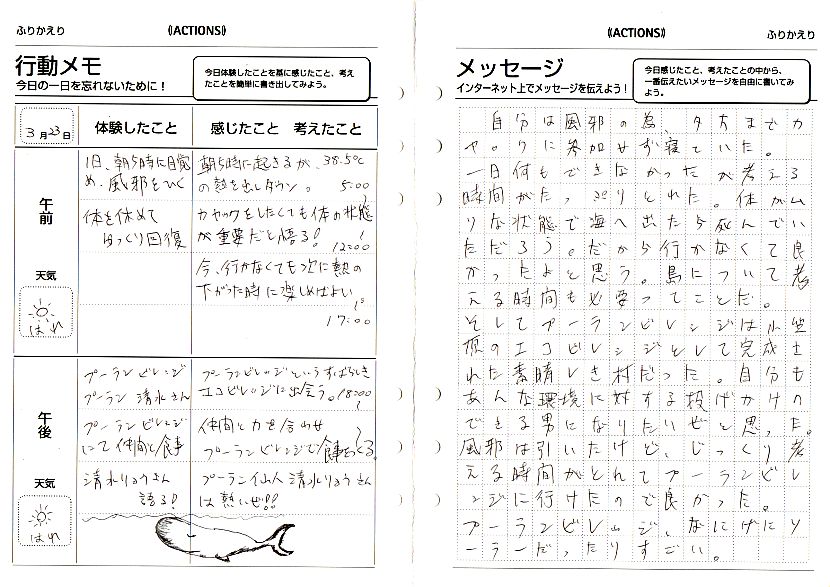 ふりかえり
《ACTIONS》
行動メモ
今日の一日を忘れないために！
今日体験したことを基に感じたこと、考え
たことを簡単に書き出してみよう。
3月23日
体験したこと
感じたこと 考えたこと
午前
天気
はれ
1日、朝5時に目覚
め、風邪をひく
体を休めて
ゆっくり回復
朝5時に起きるが、38.5℃
の熱を出しダウン。 5:00
カヤックをしたくても体の状態
が重要だと悟る! 12:00
今、行かなくてもつぎに熱の
下がった時に楽しめばよい
17:00
午後
天気
はれ
プーランビレッジ
プーラン 清水さん
プーランビレッジ
にて仲間と食事
清水りょうさん
語る!
プーランビレッジというすばらしき
エコビレッジに出会う。18:00
仲間と力を合わせ
プーランビレッジで食事をつくる
プーラン仙人 清水りょうさん
は熱いぜ!!
《ACTIONS》
ふりかえり
メッセージ
インターネット上でメッセージを伝えよう！
今日感じたこと、考えたことの中から、
一番伝えたいメッセージを自由に書いてみ
よう。
自分は風邪の為、夕方までカ
ヤックに参加せず寝ていた。
一日何もできなかったが考える
時間がたっぷりとれた。体がム
リな状態で海へ出たら死んでい
ただろう。だから行かなくて良
かったよと思う。島について考
える時間も必要ってことだ。
そしてプーランビレッジは小笠
原のエコビレッジとして完成さ
れた素晴しき村だった。自分も
あんな環境に対する投げかけの
できる男になりたいぜと思った。
風邪は引いたけど、じっくり考
える時間がとれてプーランビレ
ッジに行けたので良かった。
プーランビレッジ、なにげにリ
ーラーだったりすごい。